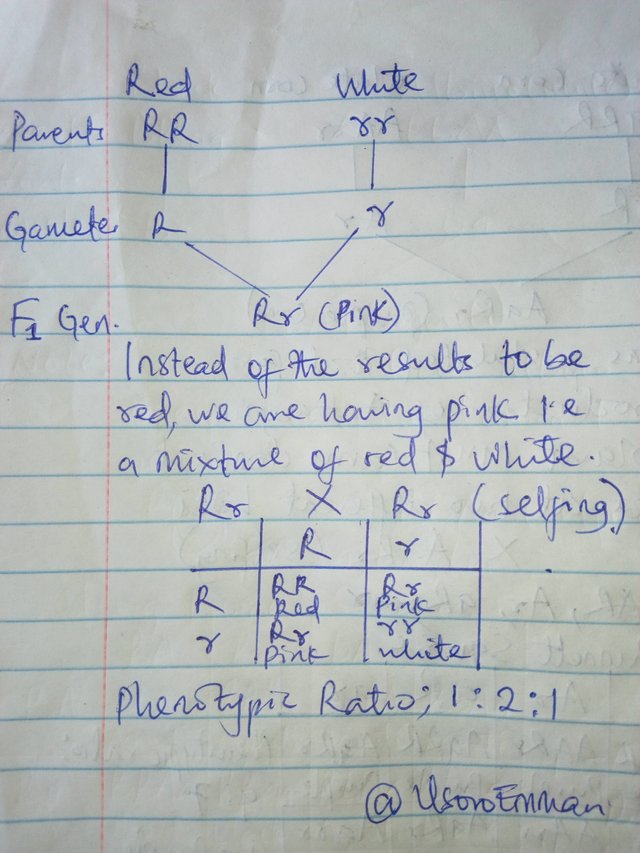 Red White
Parents RR rr
Gamete R r
F1 Gen. Rr (Pink)
Instead of the results to be
red, we are having pink i.e
a mixture of red & white.
Rr X Rr (selfing)
R r
R RR Rr
Red Pink
r Rr rr
Pink White
Phenotypic Ratio; 1:2:1
@UsoroEmman